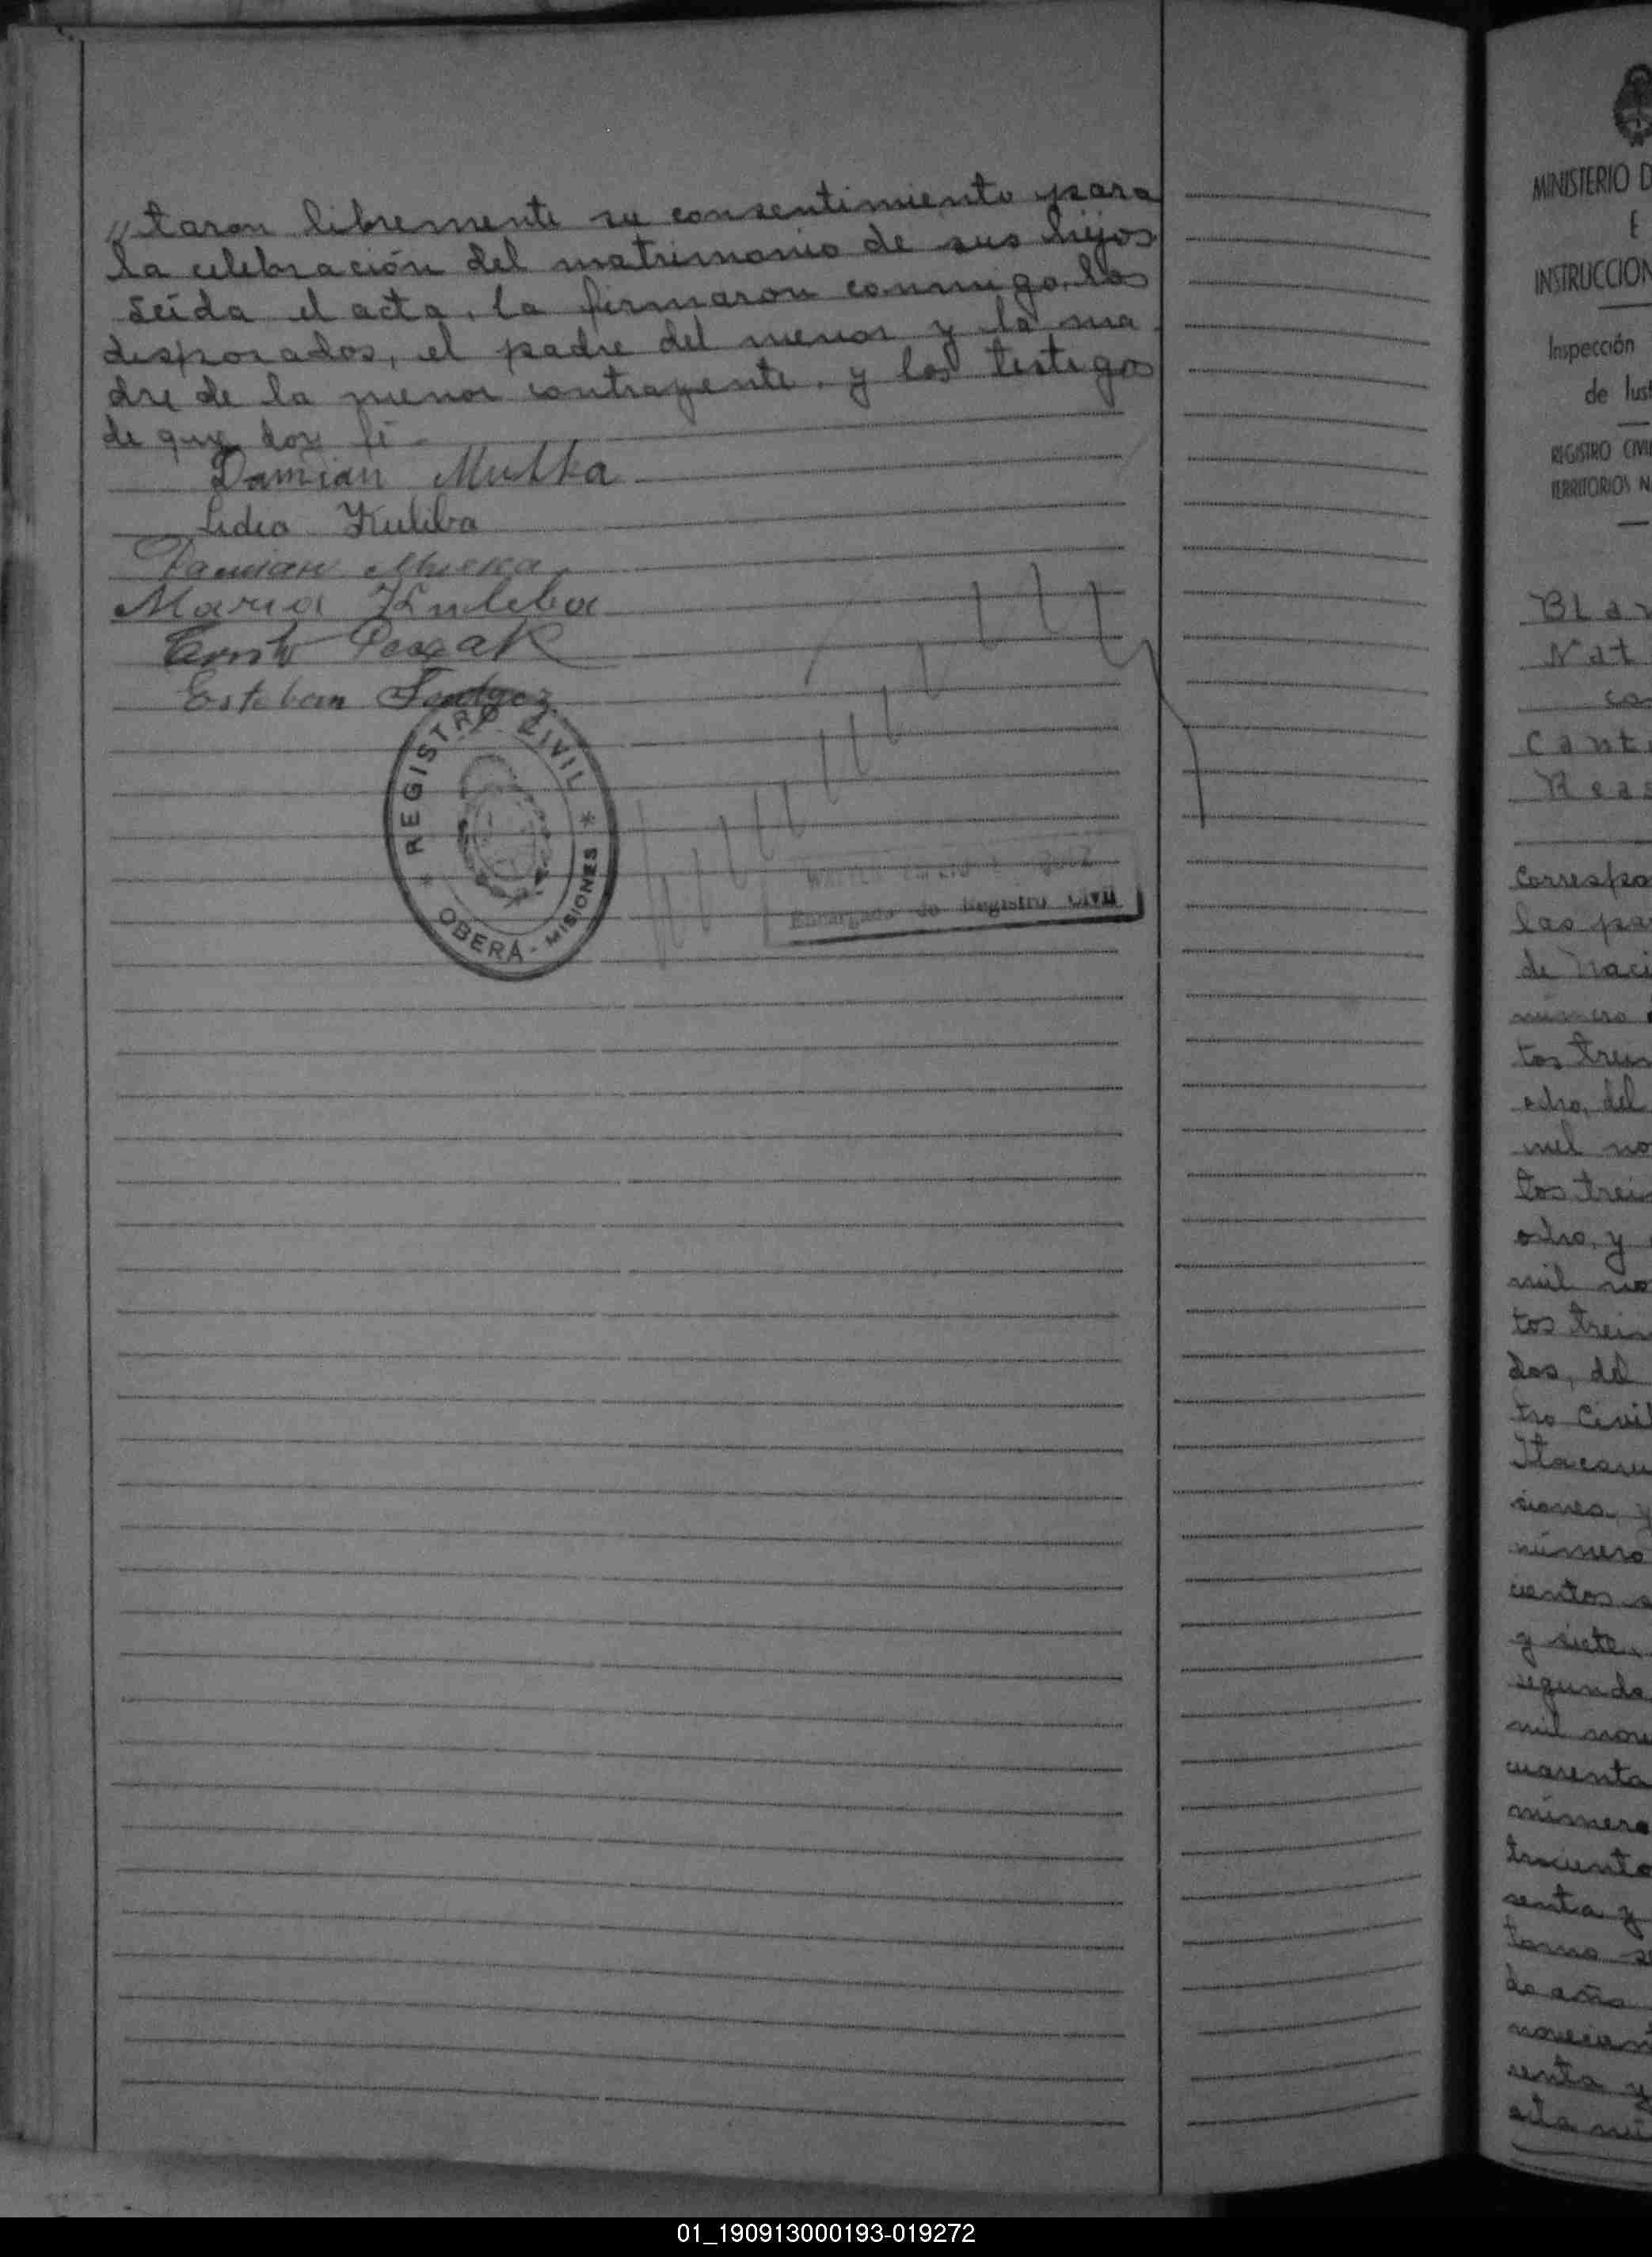 // taron libremente su consentimiento para
la celebración del matrimonio de sus hijos
Leída el acta, la firmaron conmigo, los
desposados, el padre del menor y la ma
dre de la menor contrayente, y los testigos
de que doy fé -
Damian
Lidia Kuliba
Damian
Maria Kuleba
Esteban
REGISTRO CIVIL
OBERÁ - MISIONES
Encargado de Registro Civil
MINISTERIO D
E
INSTRUCCION
Inspección
de Just
REGISTRO CIVIL
TERRITORIOS N
Bla
Nat
co
Cant
Reas
Correspo
las pa
de Naci
número
tos trein
ocho, del
mil no
tos trei
ocho, y
mil no
tos trein
dos, del
tro Civil
Itacaru
siones, y
número
cientos s
y siete,
segundo
mil nov
cuarenta
número
tresciento
senta y
tomo s
de año
novecien
senta y
acta nú
01_190913000193-019272